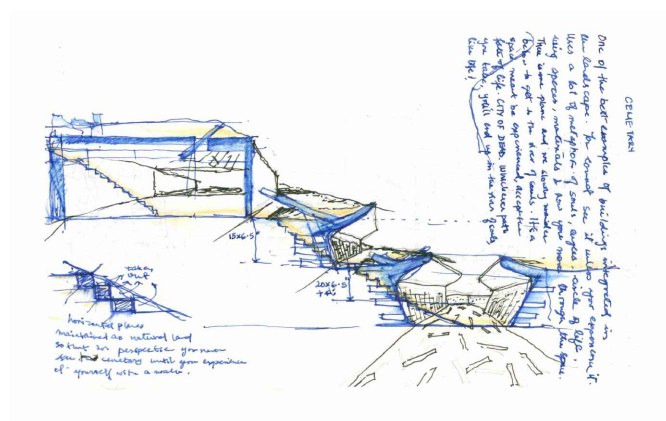 CEMETARY
One of the best examples of buildings integrated in
the landscape. The concept see it unless you experience it.
Uses a lot of metaphor of souls, angers, circle of life,
using spaces, materials & how you move through the space.
There is one plane and we slowly meander
below to get to the river of souls. It's a
space meant to be experienced, accept the
fate of life. CITY OF DEAD. Whichever path
you take, you'll end up in the river of souls
like life!
15X6.5"
20X6.5"
taken
out
horizontal planes
maintained as natural land
so that in perspective you never
see the cemetery until you experience
it yourself with a